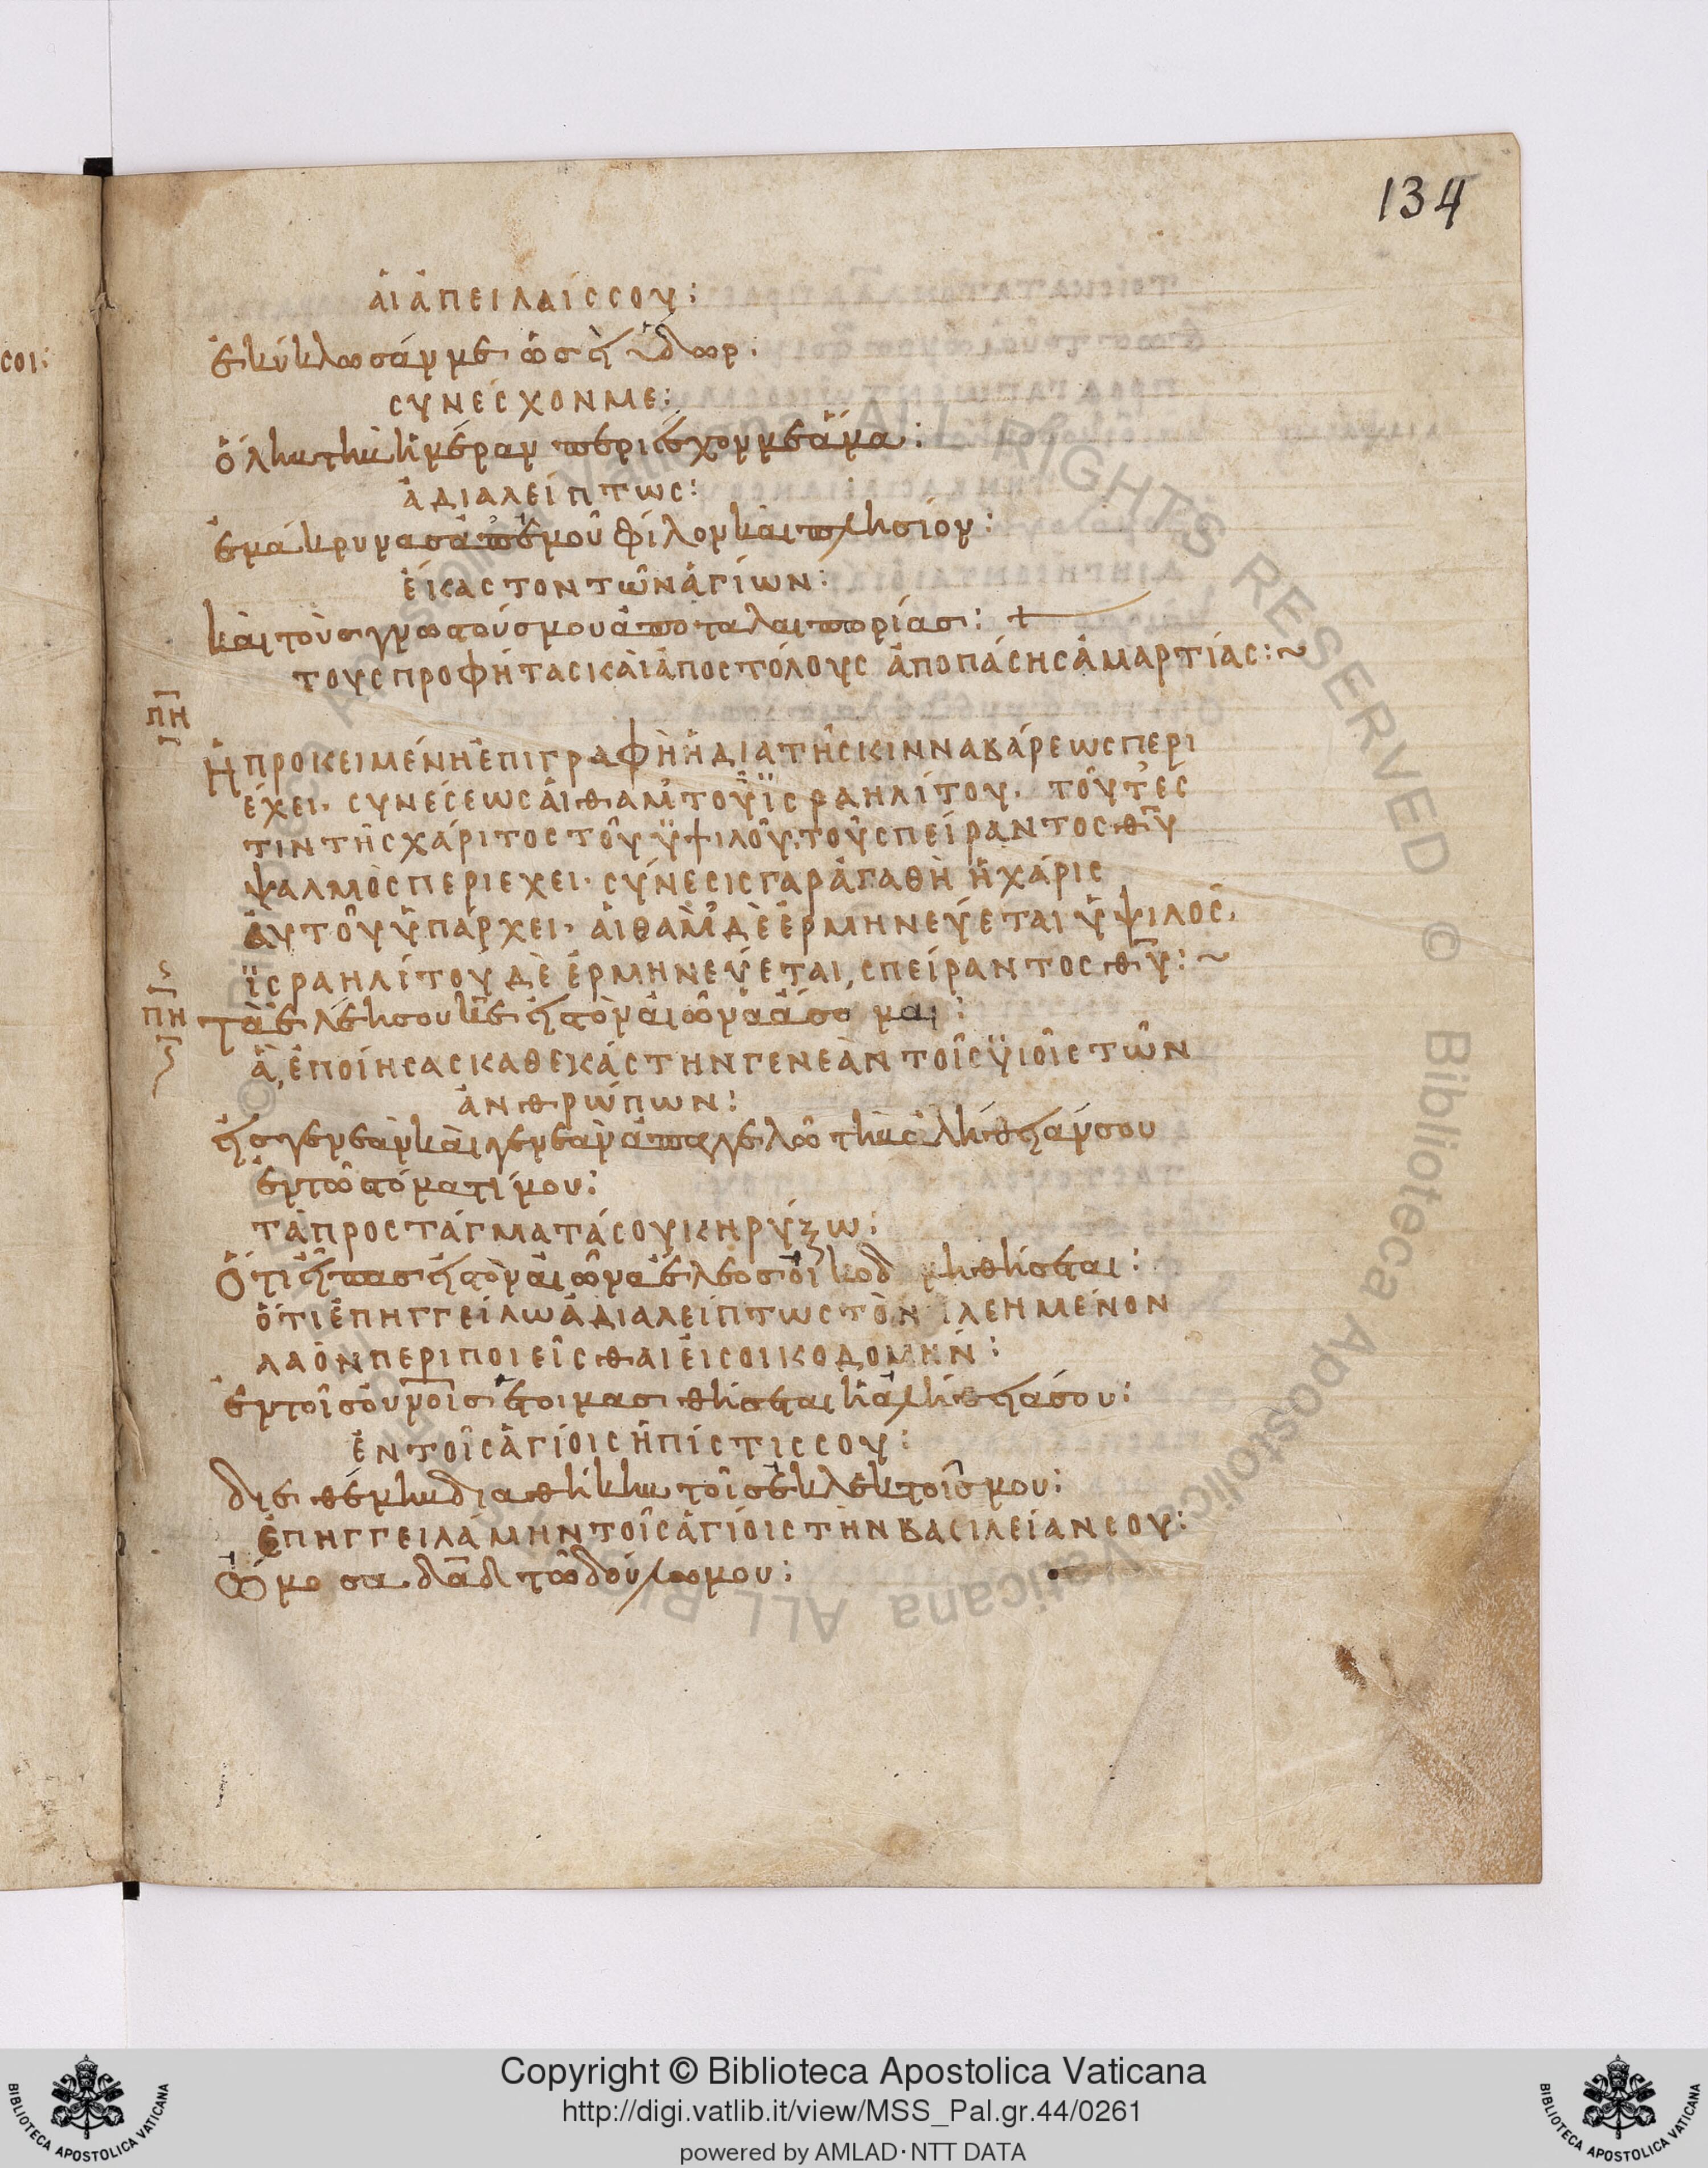 134
ἁι ἀπειλαί σου:
ἐκύκλωσάν με ὡσεὶ ὕδωρ.
συνέσχον με:
ὅλην τὴν ἡμέραν περιέσχον με ἅμα:
ἀδιαλείπτως:
ἐμάκρυνας ἀπ' ἐμοῦ φίλον καὶ πλησίον:
ἕκαστον τῶν ἁγίων:
καὶ τοὺς γνωστούς μου ἀπὸ ταλαιπωρίας: +
τους προφήτας καὶ ἀποστόλους ἀπο πάσης ἁμαρτίας:~
πη
Ἡ προκειμένη ἐπιγραφὴ ἡ διὰ τῆς κινναβάρεως περι
έχει· συνέσεως ἀιθαμ τοῦ ἰσραηλίτου· τοῦτ' ές
τιν τῆς χάριτος τοῦ ὑψιλοῦ, τοῦ σπείραντος θ̅υ̅
ψαλμὸς περιεχει· σύνεσις γαρ ἀγαθὴ ἡ χάρις
ἀυτοῦ ὑπάρχει· ἀιθὰμ δὲ ἑρμηνεύεται ὑψιλός,
ἰσραηλίτου δὲ ἑρμηνεύεται, σπείραντος θ̅υ̅:~
πη
τὰ ἐλέη σου κ̅ε̅ εἰς τὸν ἀιῶνα ἄσομαι:
ἃ, ἐποίησας καθ εκάστην γενεὰν τοῖς υἱοῖς τῶν
ἀνθρώπων:
εἰς γενεὰν καὶ γενεὰν ἀπαγγελῶ τὴν ἀλήθειάν σου
ἐν τῶ στόματί μου:
τὰ προστάγματά σου κηρύξω:
Ὅτι εἶπας εἰς τὸν αἰῶνα ἔλεος οἰκοδομηθήσεται:
ὅτι ἐπηγγείλω ἀδιαλείπτως τὸν ἰλεημένον
λαὸν περιποιεῖσθαι εἰς οικοδομήν:
ἐν τοῖς ο̅υ̅ν̅οῖς ἑτοιμασθήσεται ἡ ἀλήθειά σου:
ἐν τοῖς ἁγίοις ἡ πίστις σου:
διεθέμην διαθήκην τοῖς ἐκλεκτοῖς μου:
Ἐπηγγειλάμην τοῖς ἁγίοις τὴν βασιλείαν σου:
Ὤμοσα δ̅α̅δ̅ τῶ δούλω μου:
σοι:
Copyright © Biblioteca Apostolica Vaticana
http://digi.vatlib.it/view/MSS_Pal.gr.44/0261
powered by AMLAD·NTT DATA
BIBLIOTECA APOSTOLICA VATICANA
BIBLIOTECA APOSTOLICA VATICANA